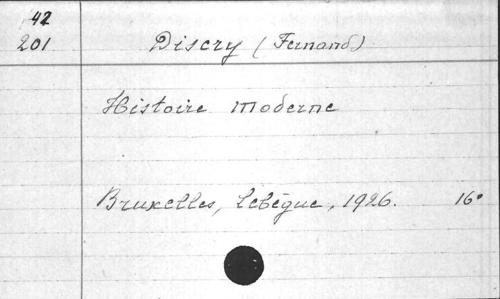 42
201 Discry (Fernand)
Histoire moderne
Bruxelles, Lebègue, 1926. 16°